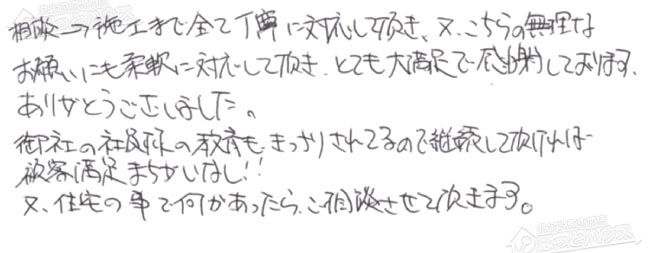 相談→施工まで全て丁寧に対応して頂き、又、こちらの無理な
お願いにも柔軟に対応して頂き、とても大満足で感謝しております。
ありがとうございました。
御社の社員様の教育も、きっちりされてるので継続して頂ければ
顧客満足まちがいなし!!
又、住宅の事で何かあったら、ご相談させて頂きます。